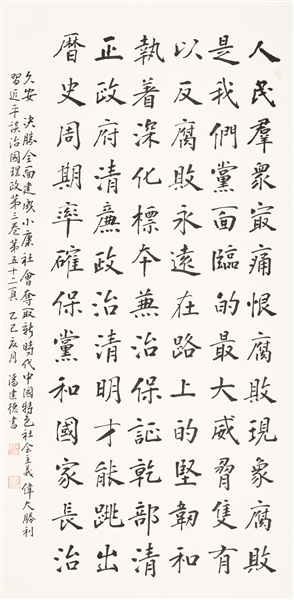 人民羣衆㝡痛恨腐敗現象腐敗
是我們黨面臨的最大威脅隻有
以反腐敗永遠在路上的堅韌和
執着深化標本兼治保証乾部清
正政府清廉政治清明才能跳出
曆史周期率確保黨和國家長治
久安 决勝全面建成小康社會奪取新時代中國特色社会主義偉大勝利
習近平談治國理政第三卷第五十二頁 乙巳夏月 潘建德書